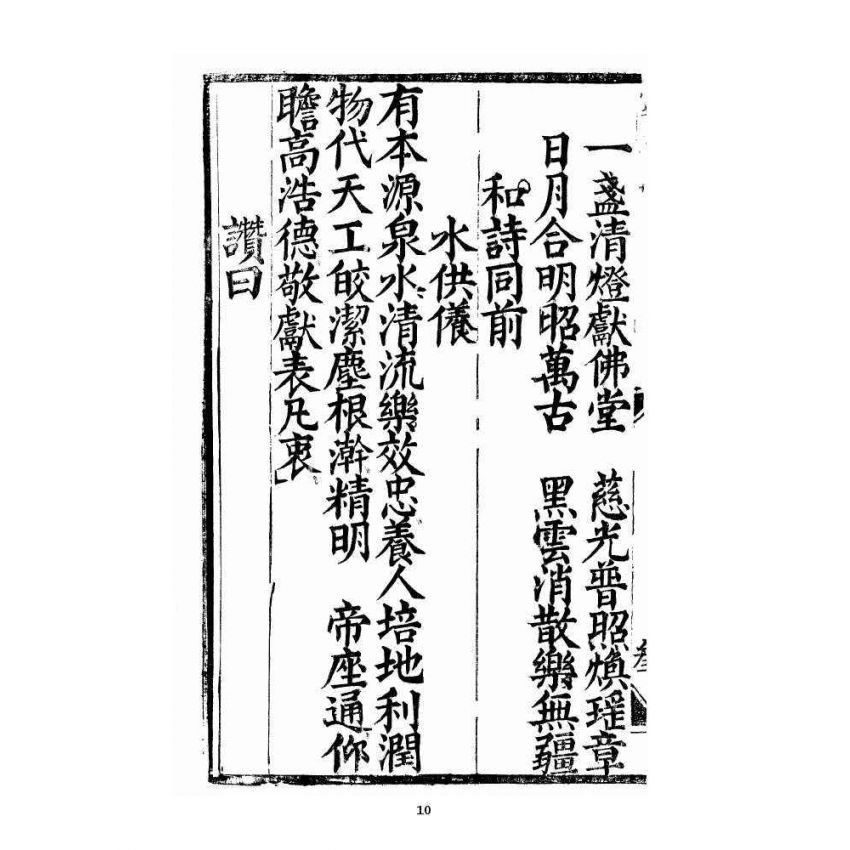 一盞清燈獻佛堂　慈光普照煥瑶章
日月合明昭萬古　黑雲消散樂無疆
和詩同前
水供儀
有本源泉水清流樂效忠養人培地利潤
物代天工皎潔塵根澣精明　帝座通仰
瞻高浩德敬獻表凡衷
讚曰
10